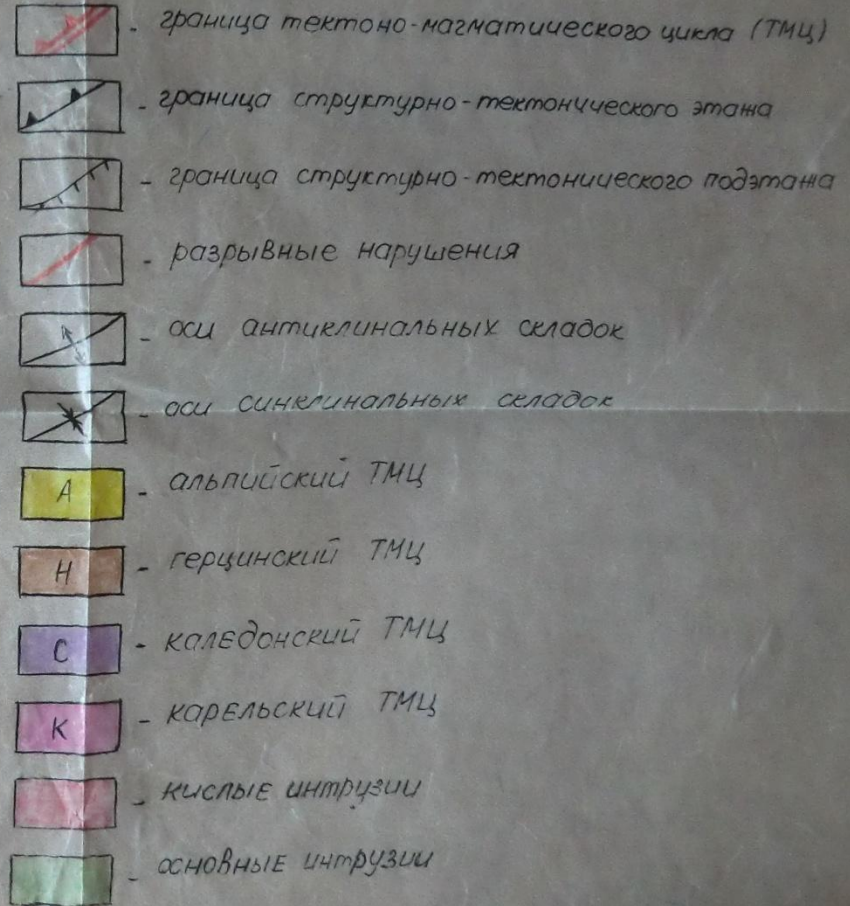 - граница тектоно-магматического цикла (ТМЦ)
- граница структурно-тектонического этажа
- граница структурно-тектонического подэтажа
- разрывные нарушения
- оси антиклинальных складок
- оси синклинальных складок
А - альпийский ТМЦ
Н - герцинский ТМЦ
С - каледонский ТМЦ
К - карельский ТМЦ
- кислые интрузии
- основные интрузии